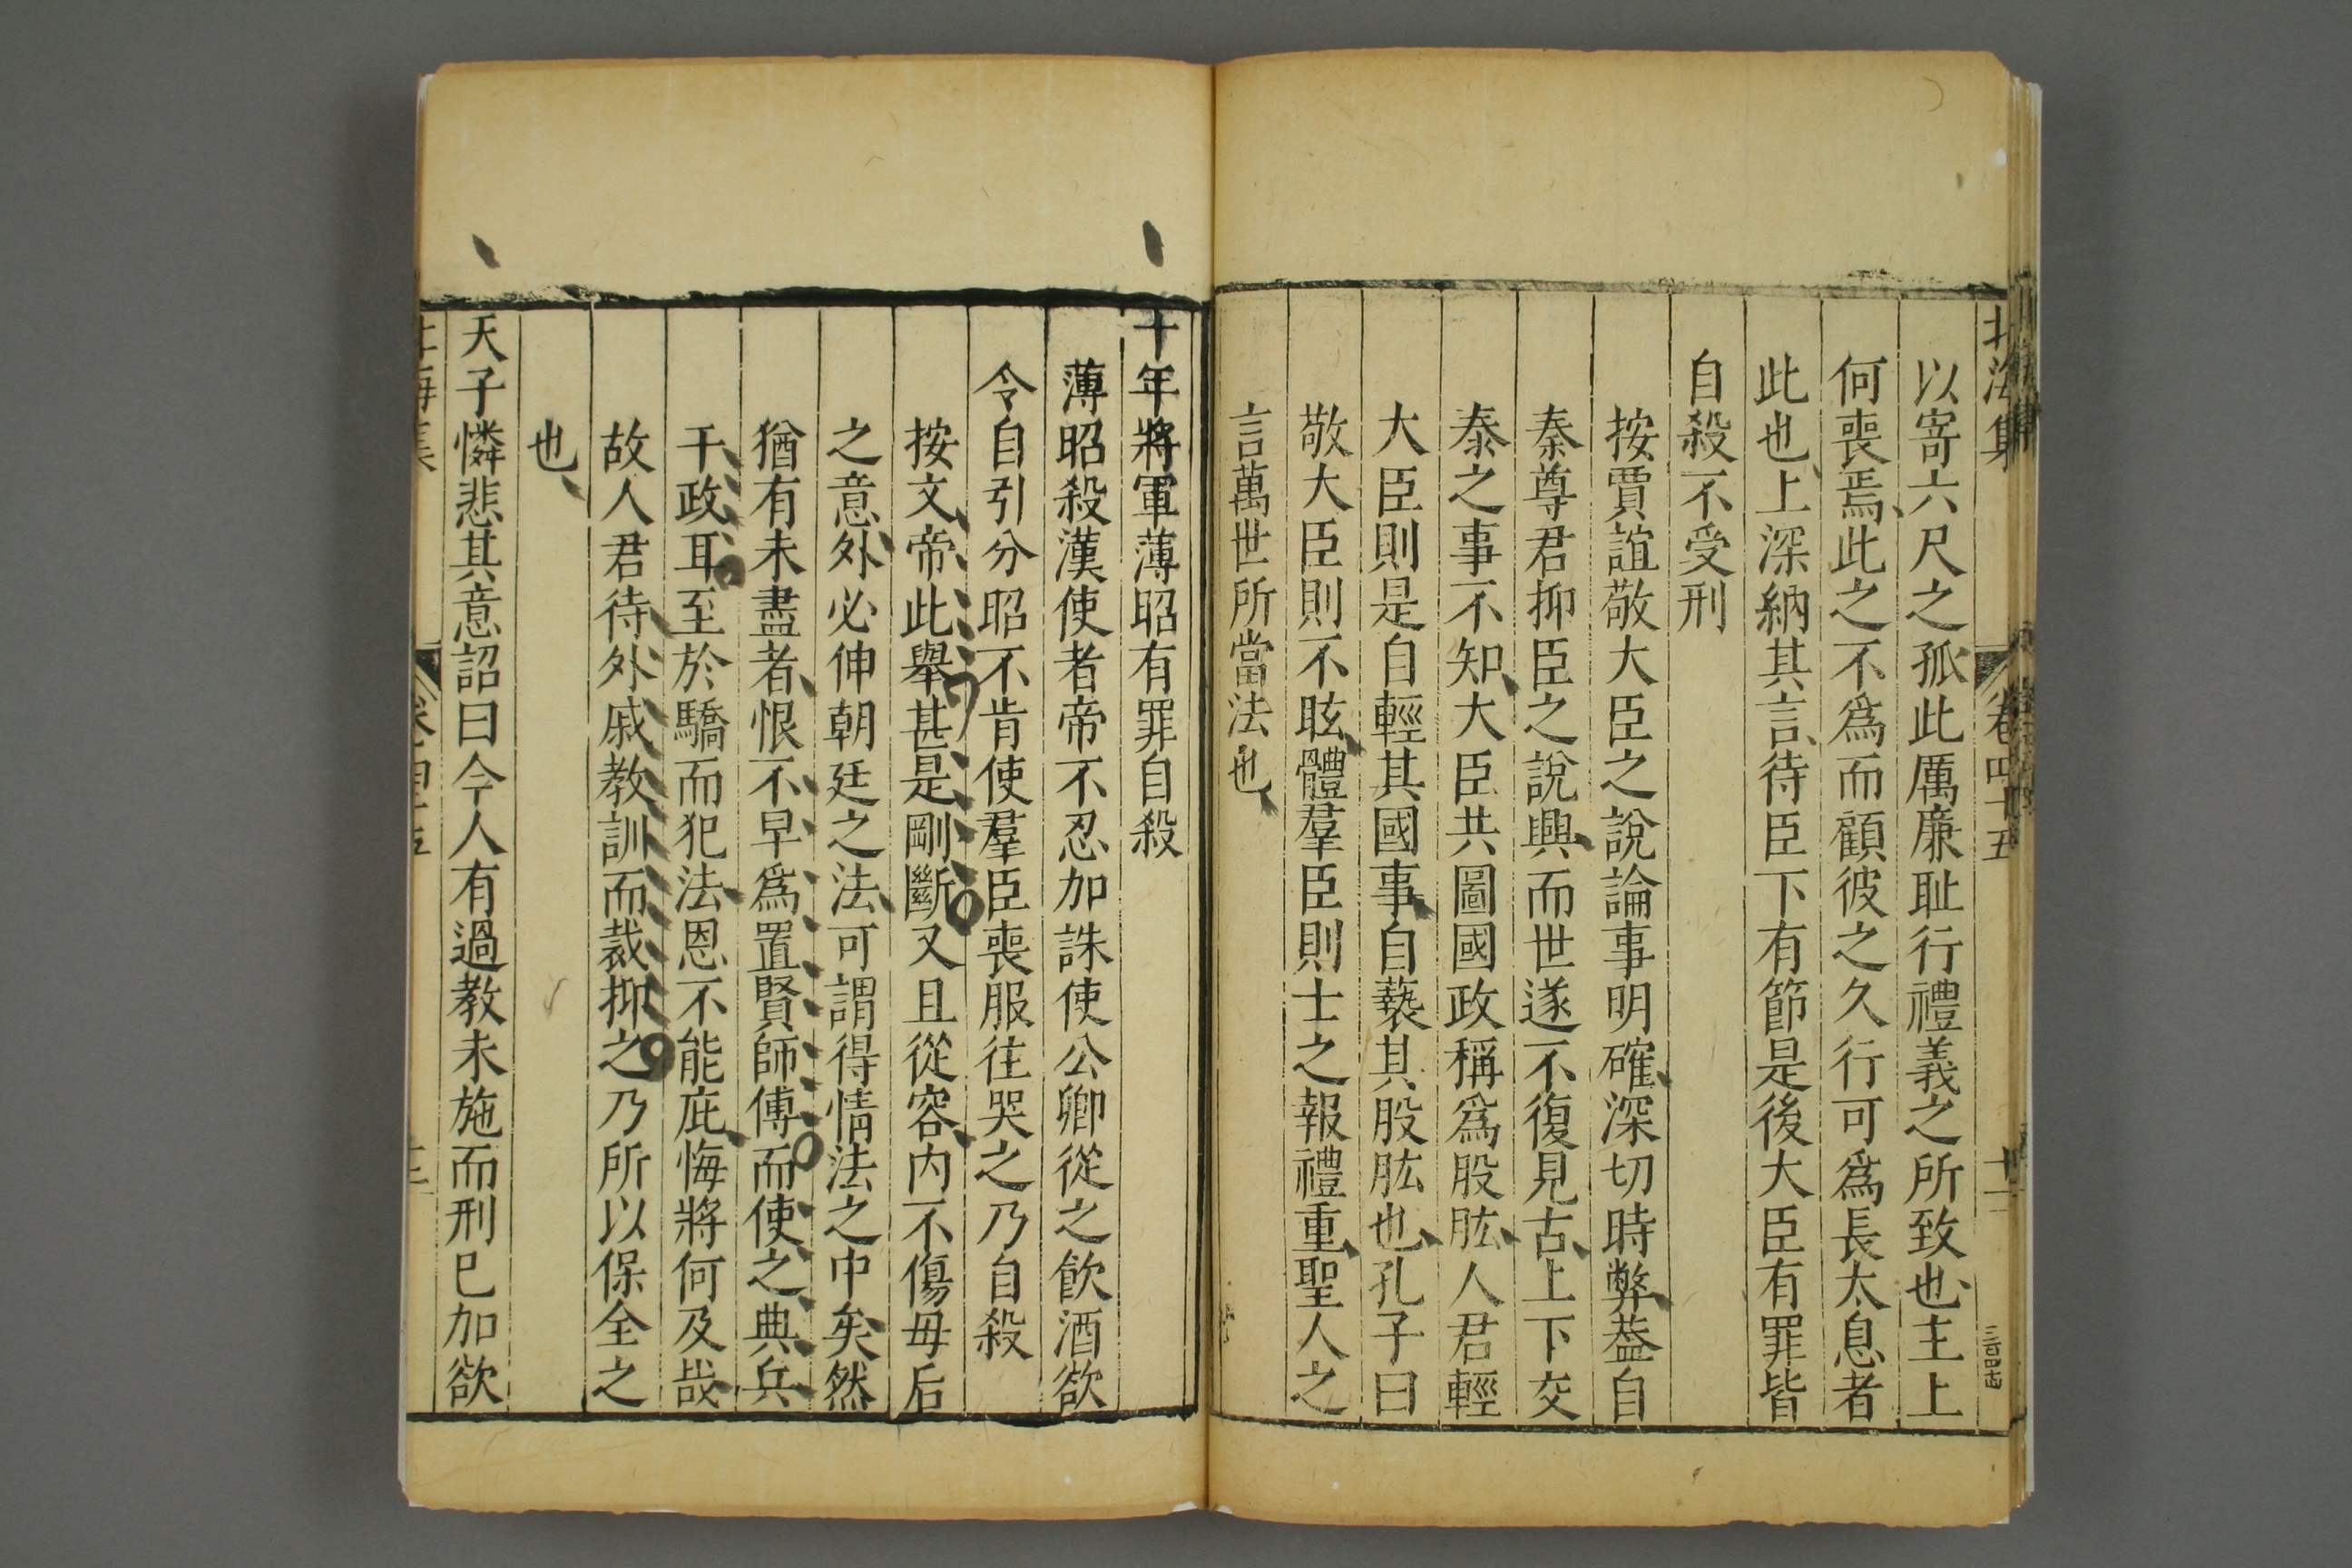 北海集 卷四十五 十一
以寄六尺之孤此厲廉耻行禮義之所致也主上
何喪焉此之不爲而顧彼之久行可爲長太息者
此也上深納其言待臣下有節是後大臣有罪皆
自殺不受刑
按賈誼敬大臣之說論事明確深切時弊葢自
秦尊君抑臣之說興而世遂不復見古上下交
泰之事不知大臣共圖國政稱爲股肱人君輕
大臣則是自輕其國事自褻其股肱也孔子曰
敬大臣則不眩體羣臣則士之報禮重聖人之
言萬世所當法也
十年將軍薄昭有罪自殺
薄昭殺漢使者帝不忍加誅使公卿從之飲酒欲
令自引分昭不肯使羣臣喪服往哭之乃自殺
按文帝此舉甚是剛斷又且從容内不傷母后
之意外必伸朝廷之法可謂得情法之中矣然
猶有未盡者恨不早爲置賢師傅而使之典兵
干政耳至於驕而犯法恩不能庇悔將何及哉
故人君待外戚教訓而裁抑之乃所以保全之
也
天子憐悲其意詔曰今人有過教未施而刑已加欲